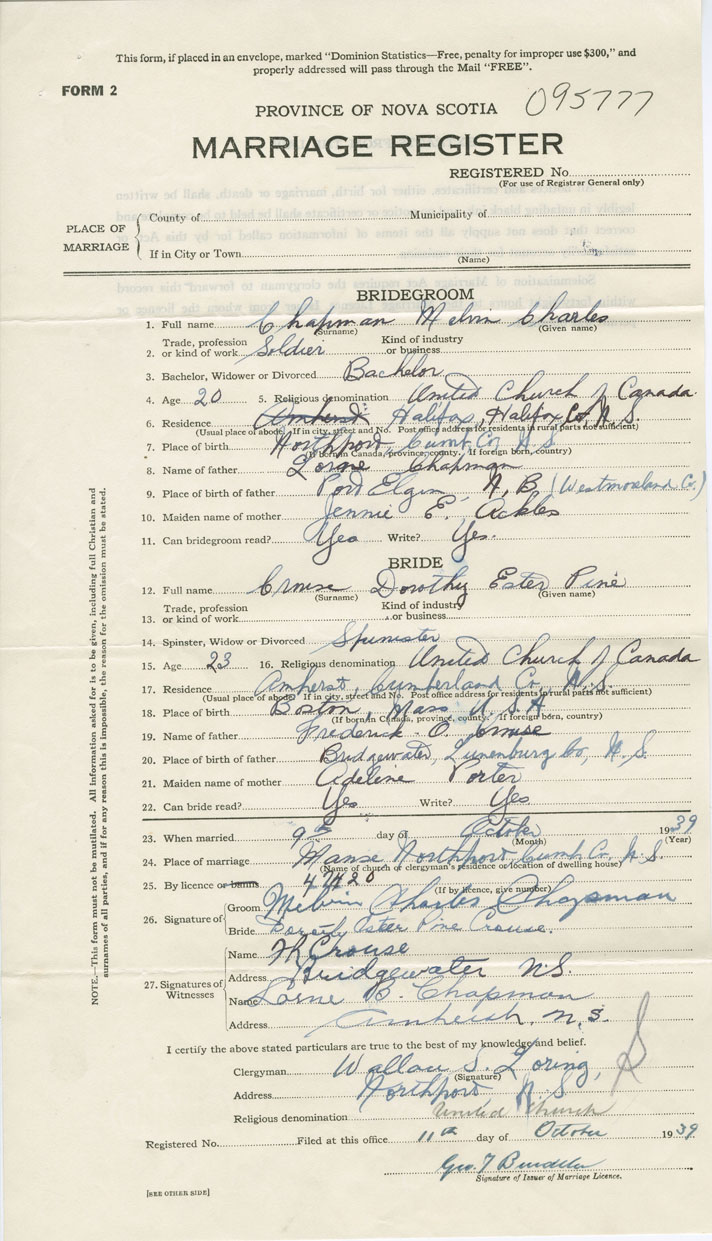 This form, if placed in an envelope, marked "Dominion Statistics—Free, penalty for improper use $300," and
properly addressed will pass through the Mail "FREE".
FORM 2
095777
PROVINCE OF NOVA SCOTIA
MARRIAGE REGISTER
REGISTERED No.
(For use of Registrar General only)
PLACE OF MARRIAGE
County of Municipality of
If in City or Town
(Name)
BRIDEGROOM
1. Full name Chapman Melvin Charles
(Surname) (Given name)
2. Trade, profession or kind of work Soldier Kind of industry or business
3. Bachelor, Widower or Divorced Bachelor
4. Age 20 5. Religious denomination United Church of Canada
6. Residence Amherst Halifax, Halifax Co, N.S.
(Usual place of abode. If in city, street and No. Post office address for residents in rural parts not sufficient)
7. Place of birth Northport, Cumb Co, N.S
(If born in Canada, province, county. If foreign born, country)
8. Name of father Lorne Chapman
9. Place of birth of father Port Elgin, N.B (Westmorland Co.)
10. Maiden name of mother Jennie E. Ackles
11. Can bridegroom read? Yes Write? Yes.
BRIDE
12. Full name Crouse Dorothy Ester Pine
(Surname) (Given name)
13. Trade, profession or kind of work Kind of industry or business
14. Spinster, Widow or Divorced Spinister
15. Age 23 16. Religious denomination United Church of Canada
17. Residence Amherst, Cumberland Co, N.S
(Usual place of abode. If in city, street and No. Post office address for residents in rural parts not sufficient)
18. Place of birth Boston, Mass U.S.A
(If born in Canada, province, county. If foreign born, country)
19. Name of father Frederick O. Crouse
20. Place of birth of father Bridgewater, Lunenburg Co, N.S.
21. Maiden name of mother Adeline Porter
22. Can bride read? Yes Write? Yes
23. When married 9th day of October 1939
(Month) (Year)
24. Place of marriage Manse Northport, Cumb Co, N.S.
(Name of church or clergyman's residence or location of dwelling house)
25. By licence or banns 47420
(If by licence, give number)
26. Signature of
Groom Melvin Charles Chapman
Bride Dorothy Ester Pine Crouse.
27. Signatures of Witnesses
Name Crouse
Address Bridgewater N.S.
Name Lorne B. Chapman
Address Amherst, N.S.
I certify the above stated particulars are true to the best of my knowledge and belief.
Clergyman Wallace S. Loring,
(Signature)
Address Northport N.S
Religious denomination United Church
Registered No. Filed at this office 11th day of October 1939.
Signature of Issuer of Marriage Licence.
[SEE OTHER SIDE]
NOTE.—This form must not be mutilated. All information asked for is to be given, including full Christian and
surnames of all parties, and if for any reason this is impossible, the reason for the omission must be stated.